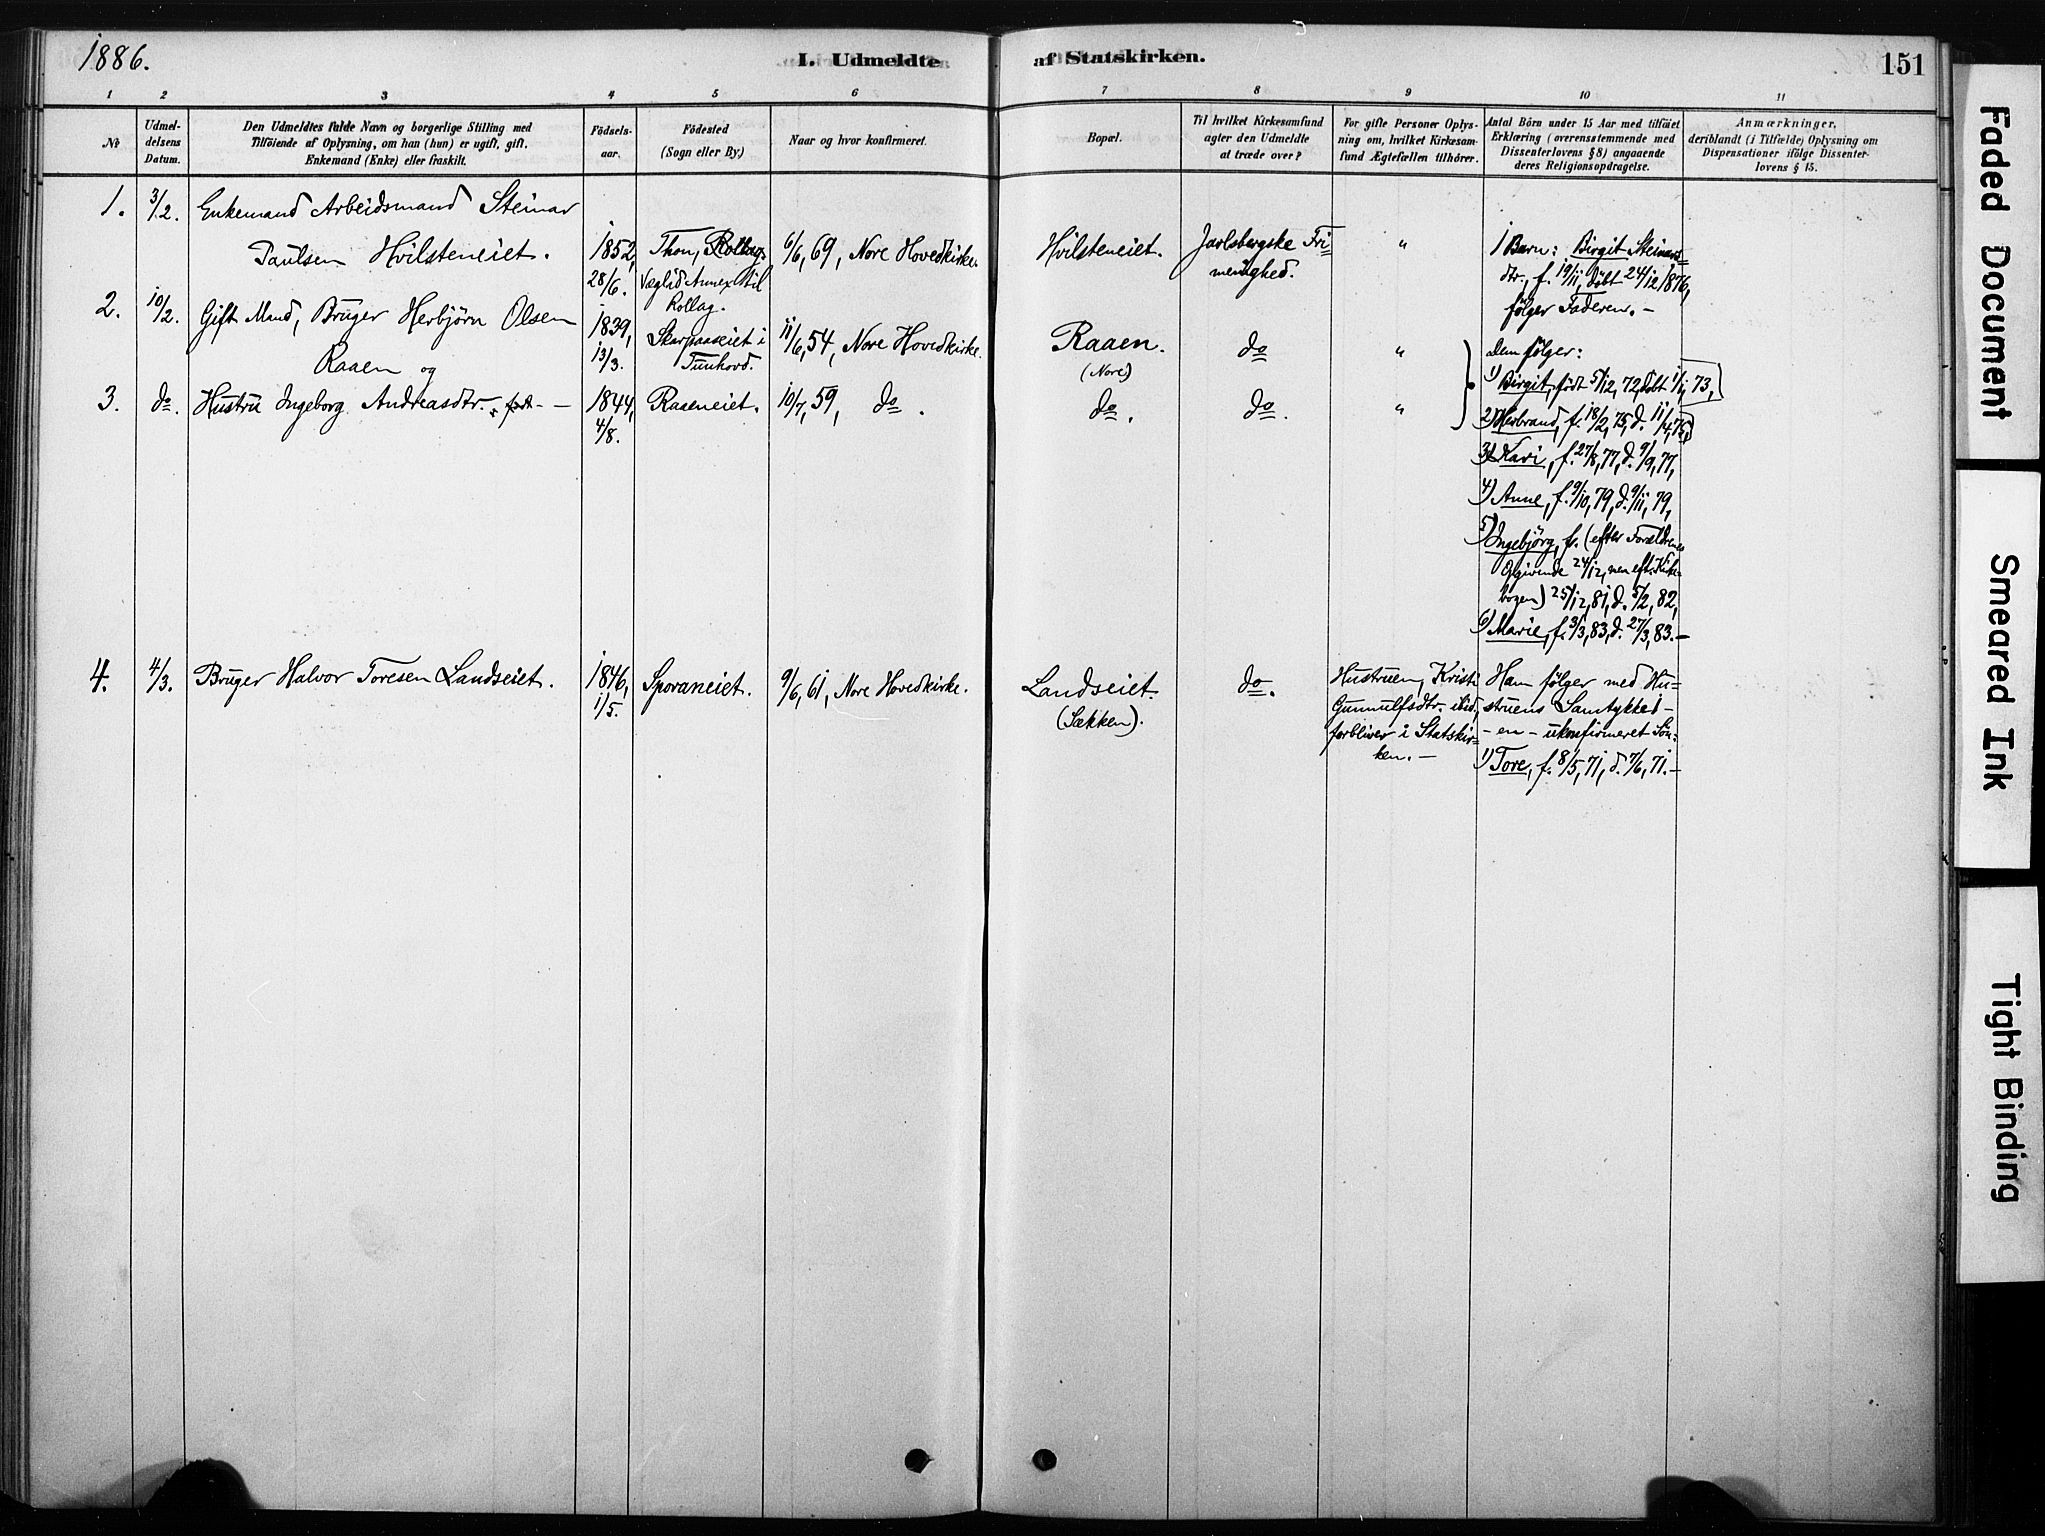 1886.
I. Udmeldte af Statskirken.
151
1 2 3 4 5 6 7 8 9 10 11
No
Udmeldelsens Datum.
Den Udmeldtes fulde Navn og borgerlige Stilling med
Tilföiende af Oplysning, om han (hun) er ugift, gift,
Enkemand (Enke) eller fraskilt.
Födselsaar.
Födested
(Sogn eller By.)
Naar og hvor konfirmeret.
Bopæl.
Til hvilket Kirkesamfund
agter den Udmeldte
at træde over?
For gifte Personer Oplys-
ning om, hvilket Kirkesam-
fund Ægtefællen tilhörer.
Antal Börn under 15 Aar med tilföiet
Erklæring (overensstemmende med
Dissenterlovens § 8) angaaende
deres Religionsopdragelse.
Anmærkninger,
deriblandt (i Tilfælde) Oplysning om
Dispensationer ifölge Dissenter-
lovens § 15.
1.
3/2.
Enkemand Arbeidsmand Steinar
Paulsen Hvilsteneiet.
1852,
28/6.
Thon, Rollag.
Væglid Annex til
Rollag.
6/6, 69, Nore Hovedkirke.
Hvilsteneiet.
Jarlsbergske Fri=
menighed.
"
1 Barn: Birgit Steinars=
dtr., f. 19/11, döbt 24/12 1876,
følger Faderen. -
2.
10/2.
Gift Mand, Bruger Herbjörn Olsen
Raaen og
1839,
13/3.
Skarpaaseiet i
Tunhovd.
11/6, 54, Nore Hovedkirke.
Raaen.
(Nore)
do
"
Dem følger:
1) Birgit, född 5/12, 72, döbt 1/1, 73,
3.
do.
Hustru Ingeborg Andreasdtr.
1844,
4/8.
Raaeneiet.
10/7, 59, do.
do.
do.
"
2) Herbrand, f. 18/2, 75, d. 11/4, 75,
3) Kari, f. 27/8, 77, d. 9/9, 77,
4) Anne, f. 9/10, 79, d. 9/11, 79,
5) Ingebjörg, f. (efter Forældrenes
Opgivende 24/12, men eft. Kirke-
bogen) 25/12, 81, d. 5/2, 82,
6) Marie, f. 3/3, 83, d. 27/3, 83. -
4.
4/3.
Bruger Halvor Toresen Landseiet.
1846,
1/5.
Sporaneiet.
9/6, 61, Nore Hovedkirke.
Landseiet.
(Søkken).
do.
Hustruen, Kristi
Gunnulfsdtr. ibid.,
forbliver i Statskir=
ken. -
Ham følger med Hu=
struens Samtykke 1 -
- en - ukonfirmeret Sön:
1) Tore, f. 8/5, 71, d. 7/6, 71. -
Faded Document
Smeared Ink
Tight Binding